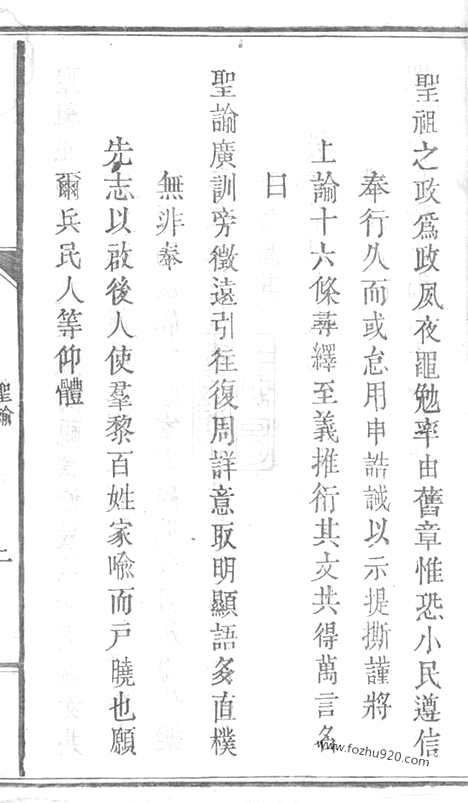 聖祖之政為政夙夜黽勉率由舊章惟恐小民遵信
奉行久而或怠用申誥誡以示提撕謹將
上諭十六條尋繹至義推衍其文共得萬言名
曰
聖諭廣訓旁徵遠引往復周詳意取明顯語多直樸
無非奉
先志以啟後人使羣黎百姓家喩而戶曉也願
爾兵民人等仰體
聖諭
二
www.fozhu920.com